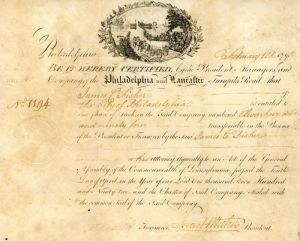 Philadelphia February 1st 179
BE IT HEREBY CERTIFIED, by the President, Managers, and
Company of the Philadelphia and Lancaster Turnpike Road, that
James C. Fisher
No. 1194 the City of Philadelphia is entitled to
one share of stock in the said Company, numbered Eleven hundred
and ninety four transferable in the Presence
of the President or Treasurer, by the said James C. Fisher
or his Attorney, agreeably to an Act of the General
Assembly of the Commonwealth of Pennsylvania, passed the Ninth
Day of April, in the Year of our Lord One thousand seven Hundred
and Ninety two, and the Charter of said Company. Sealed with
the common Seal of the said Company.
Treasurer President.